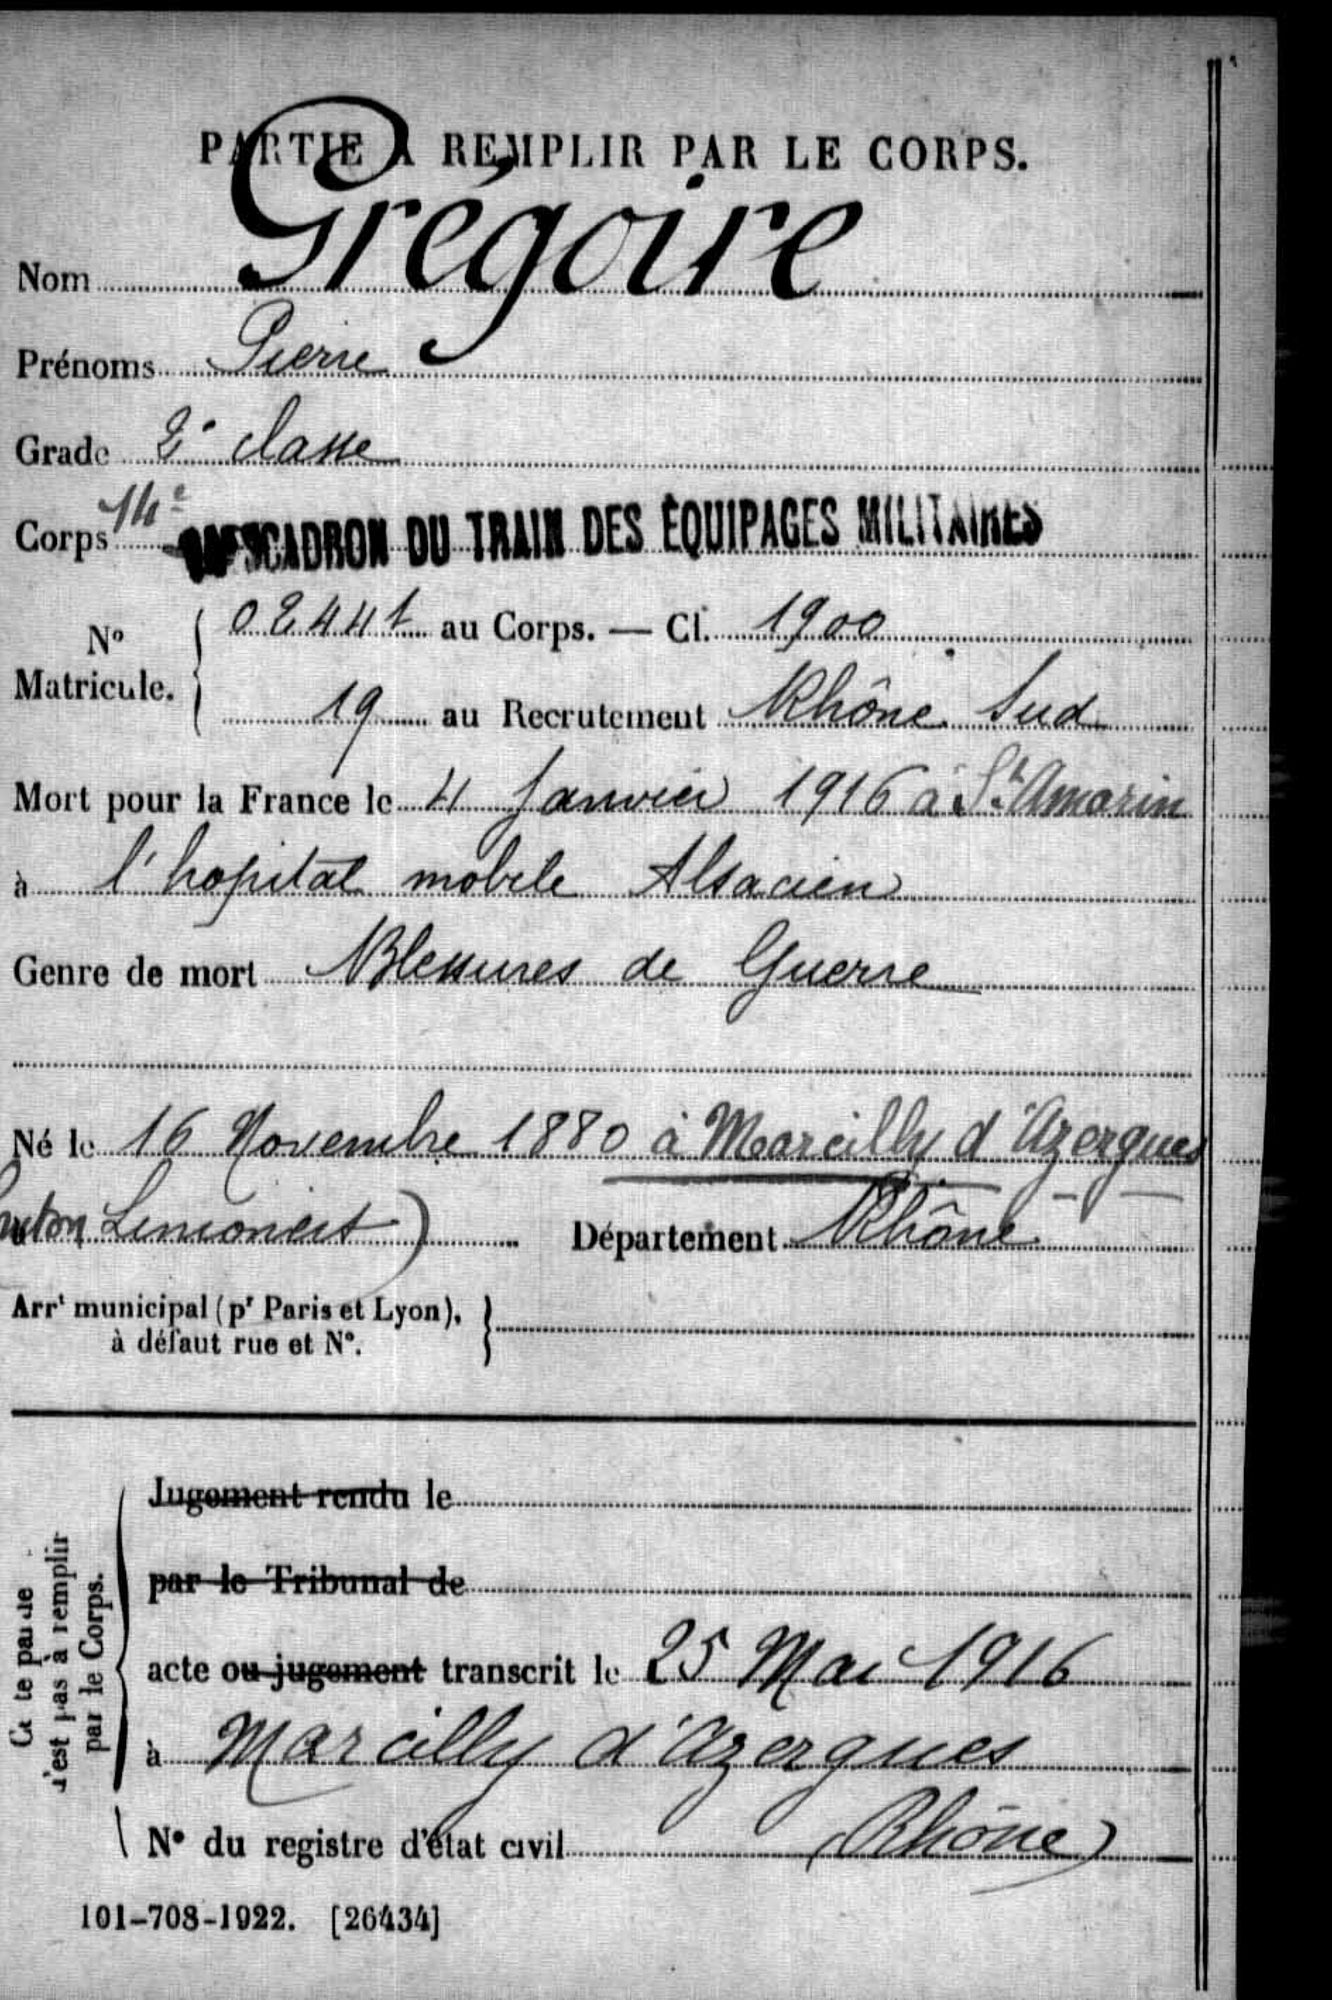 PARTIE A REMPLIR PAR LE CORPS.
Nom Grégoire
Prénoms Pierre
Grade 2e classe
Corps 14e ESCADRON DU TRAIN DES ÉQUIPAGES MILITAIRES
No Matricule. { 02441 au Corps. — Cl. 1900
19 au Recrutement Rhône Sud
Mort pour la France le 4 Janvier 1916 à St Amarin
à l'hopital mobile Alsacien
Genre de mort Blessures de Guerre
Né le 16 Novembre 1880 à Marcilly d'Azergues
Limonest) Département Rhône
Arrt municipal (pr Paris et Lyon), }
à défaut rue et No.
Jugement rendu le
par le Tribunal de
acte ou jugement transcrit le 25 Mai 1916
à Marcilly d'Azergues
No du registre d'état civil (Rhône)
Ce te partie
n'est pas à remplir
par le Corps.
101-708-1922. [26434]